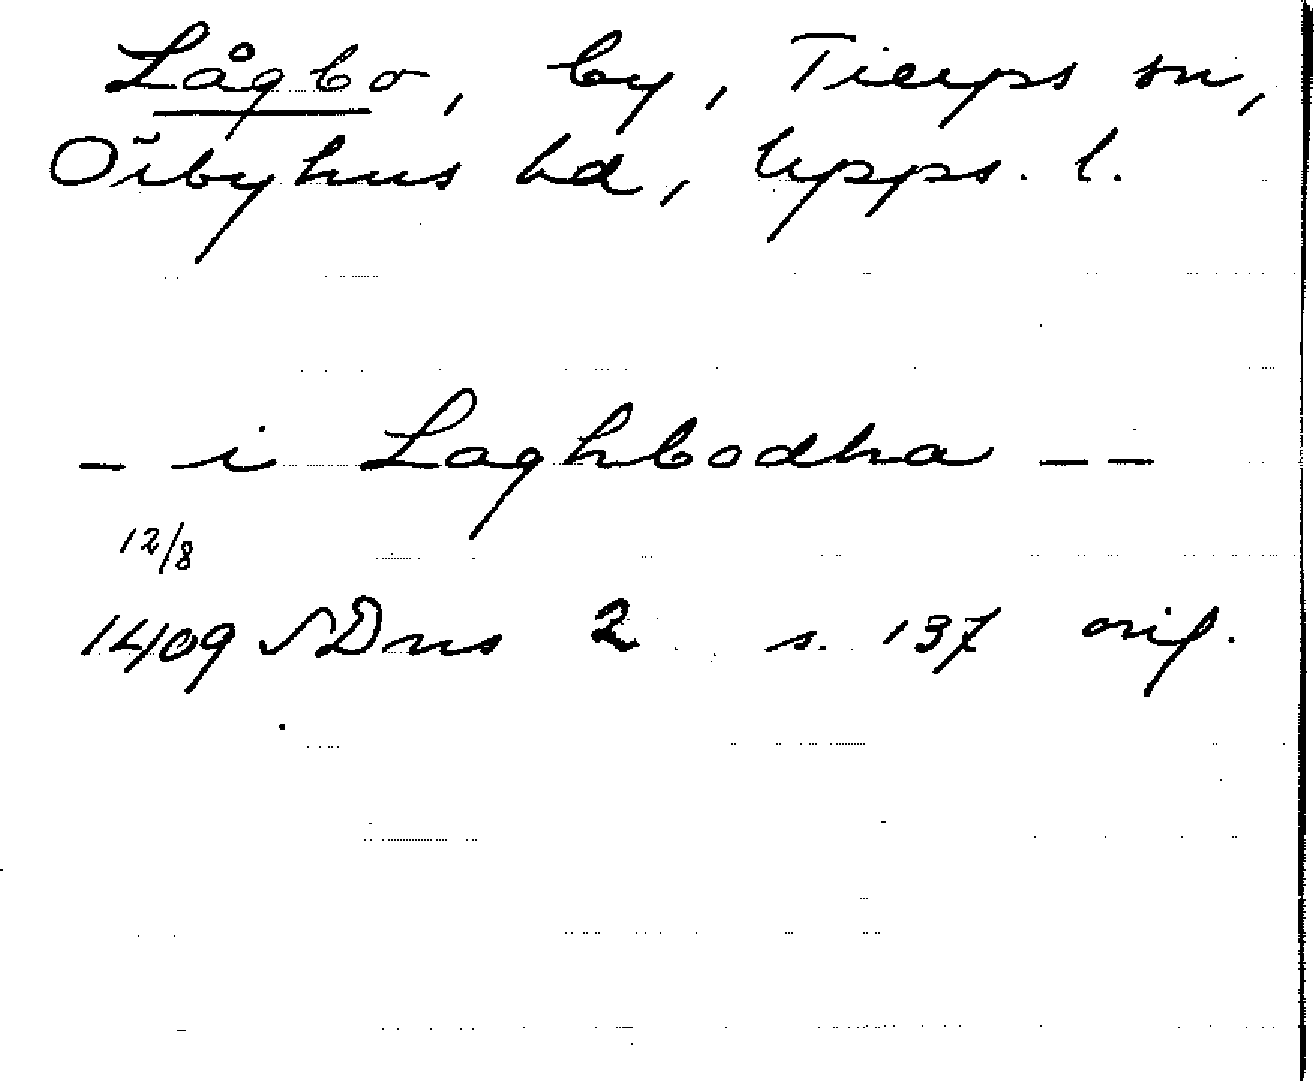 Lågbo, by, Tierps sn,
Örbyhus hd, Upps. l.
– i Laghbodha – –
12/8
1409 SDns 2 s. 137 orig.